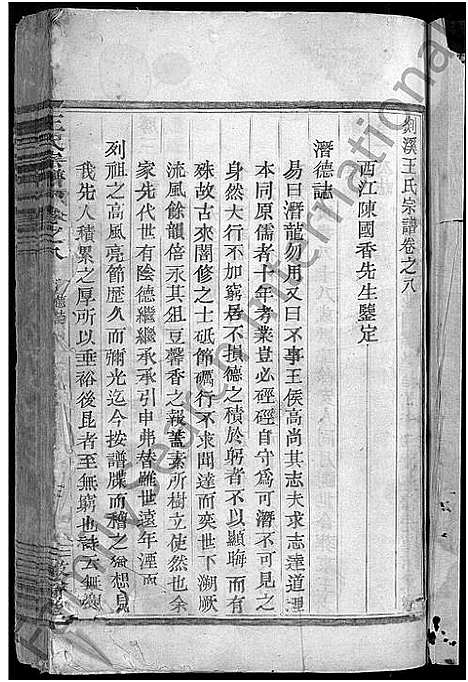 剡溪王氏宗譜卷之八
西江陳國香先生鑒定
潛德誌
易曰潛龍勿用又曰不事王侯高尚其志夫求志達道理
本同原儒者十年考業豈必硜硜自守爲可潛不可見之
身然大行不加窮居不損德之積於躬者不以顯晦而有
殊故古來闇修之士砥節礪行不求聞達而奕世下溯厥
流風餘韻倍永其俎豆馨香之報蓋素所樹立使然也余
家先代世有陰德繼繼承承引伸弗替雖世遠年湮而
列祖之高風亮節歷久而彌光迄今按譜牒而稽之猶想見
我先人積累之厚所以垂裕後昆者至無窮也詩云無
王氏宗譜 卷之八
My Search International